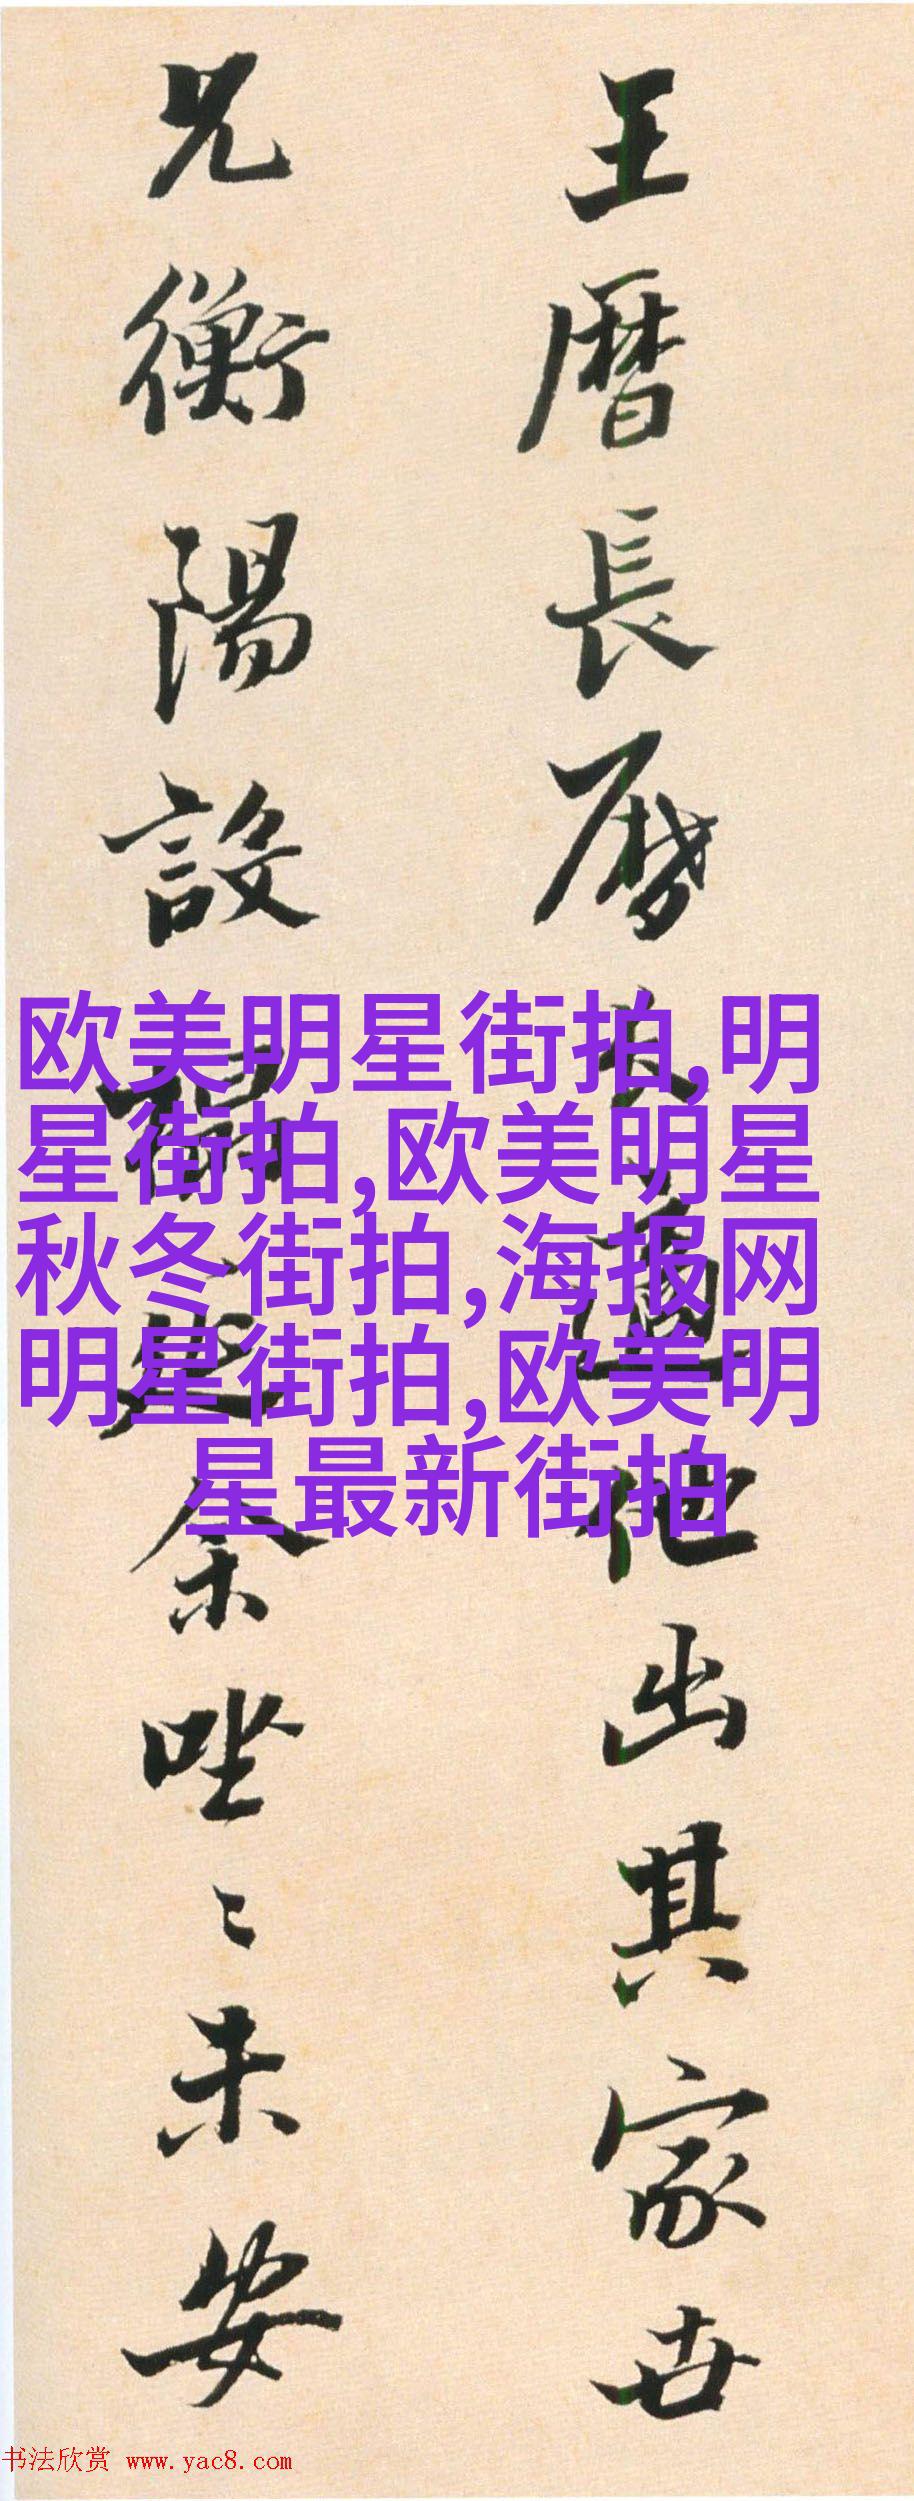 王曆長適他出其家世
兄衡陽設榻延余唑〻未安
欧美明星街拍,明
星街拍,欧美明星
秋冬街拍,海报网
明星街拍,欧美明
星最新街拍
书法欣赏 www.yac8.com